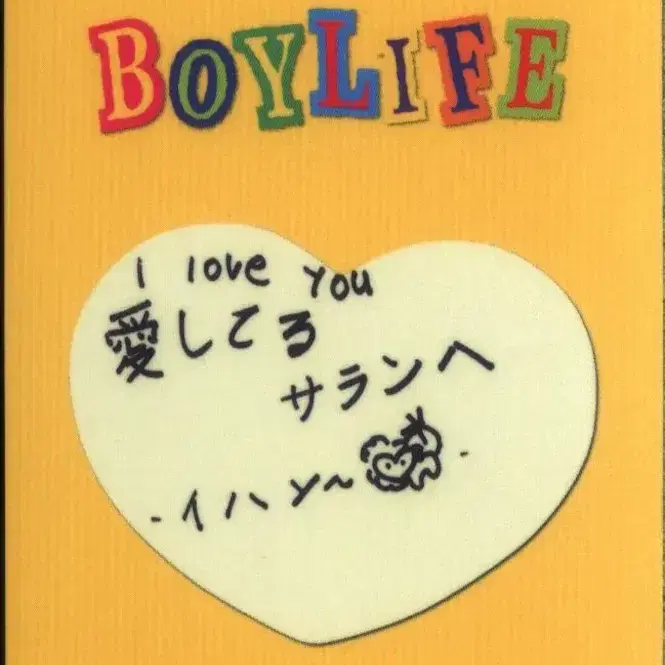 BOYLIFE
I love you
愛してる
サランヘ
- イハン~ -